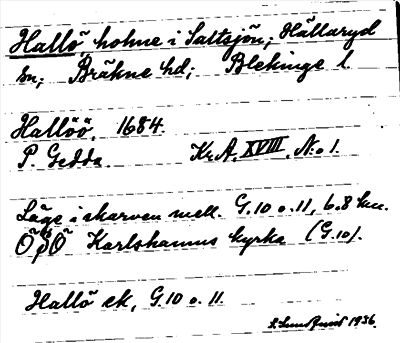 Hallö, holme i Saltsjön; Hällaryd
sn; Bräkne hd; Blekinge l.
Hallöö, 1684.
P. Gedda. Kr.A. XVIII. N:o 1.
Läge i skarven mell. G.10 o. 11, 6.8 km.
ÖSÖ Karlshamns kyrka (G.10).
Hallö ek, G.10 o. 11.
1936.